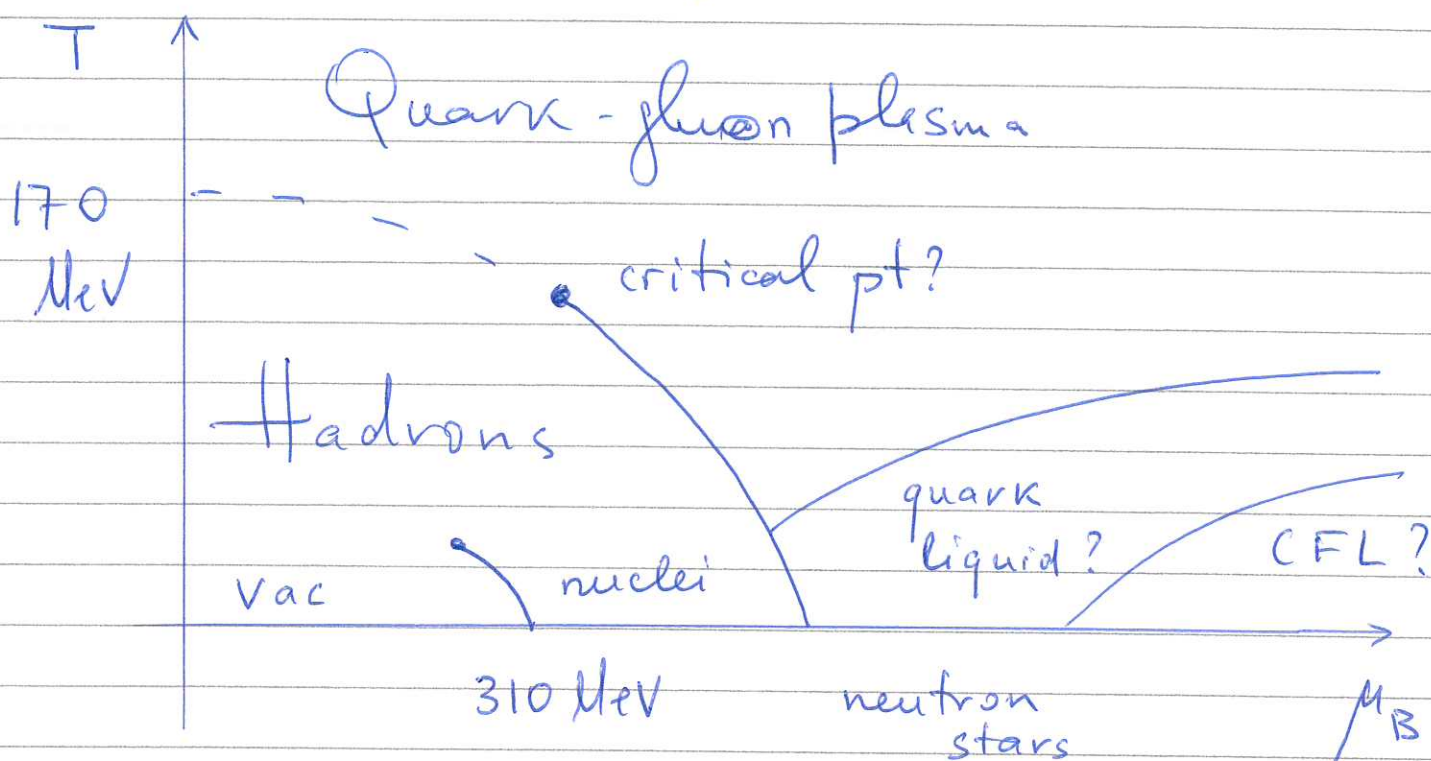 T
Quark-gluon plasma
170
MeV
critical pt?
Hadrons
quark
liquid?
CFL?
vac
nuclei
310 MeV
neutron
stars
μB